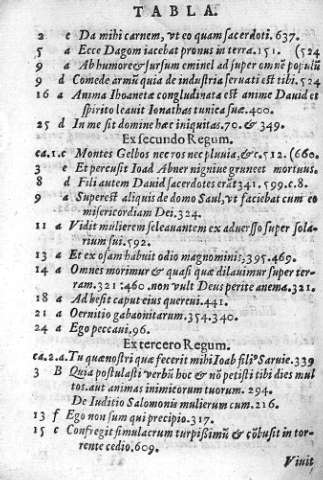 TABLA.
2 e Da mihi carnem, vt eo quam sacerdoti. 637.
5 a Ecce Dagom iacebat pronus in terra. 151. (524
9 a Ab humore & sursum eminel ad super omnē populū
9 d Comede armū quia de industria seruati est tibi. 524
16 a Anima Ihoanetæ congludinata est anime Dauid et
spirito leauit Ionathas tunica suæ. 400.
25 d In me sit domine hæc iniquitas. 70. & 349.
Ex secundo Regum.
ca. 1. c Montes Gelbos nec ros nec pluuia, &c. 512. (660.
3 e Et percusit Ioad Abner nigniue gruneet mortuus.
8 d Fili autem Dauid sacerdotes erāt 341. 599. c. 8.
9 a Superest aliquis de domo Saul, vt faciebat cum eo
misericordiam Dei. 324.
11 a Vidit mulierem seleauantem ex aduersso super sola-
rium sui. 592.
13 a Et ex osam habuit odio magnominis, 395. 469.
14 a Omnes morimur & quasi quæ dilauimur super ter-
ram. 321: 460. non vult Deus perite anema. 321.
18 a Ad besit caput eius quercui. 441.
21 a Oernitio gabaonitarum. 354. 340.
24 a Ego peccaui. 96.
Ex tercero Regum.
ca. 2. a. Tu quæ nostri quæ fecerit mihi Ioab filiº Saruie. 339
3 B Quia postulasti verbū hoc & nō petisti tibi dies mul
tos. aut animas inimicorum tuorum. 294.
De Iuditio Salomonis mulierum cum. 216.
13 f Ego non sum qui precipio. 317.
15 f Confregit simulacrum turpißimū & cōbusit in tor-
rente cedio. 609.
Viuit